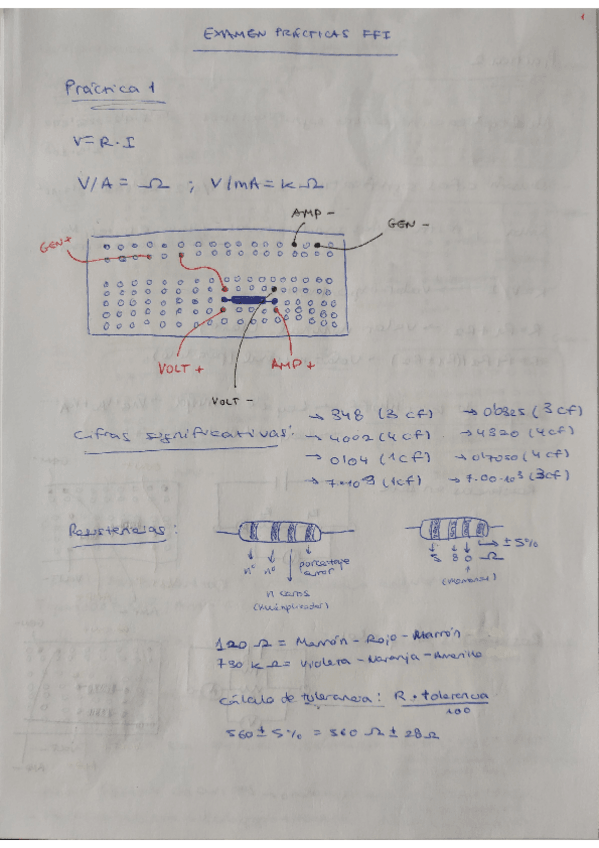 1
EXAMEN PRÁCTICAS FFI
Práctica 1
V=R·I
V/A = Ω ; V/mA = kΩ
AMP -
GEN -
GEN+
VOLT +
AMP +
VOLT -
Cifras significativas:
→ 348 (3 cf)
→ 0'0325 (3 cf)
→ 4002 (4 cf)
→ 4320 (4cf)
→ 7·10³ (1cf)
→ 7.00·10³ (3cf)
Resistencias:
nº nº
porcentaje error
n ceros
(multiplicador)
± 5%
Ω
120 Ω = Marrón - Rojo - Marrón
730 kΩ = Violeta - Naranja - Amarillo
Cálculo de tolerancia: R · tolerancia
100
560 ± 5% = 560 Ω ± 28Ω